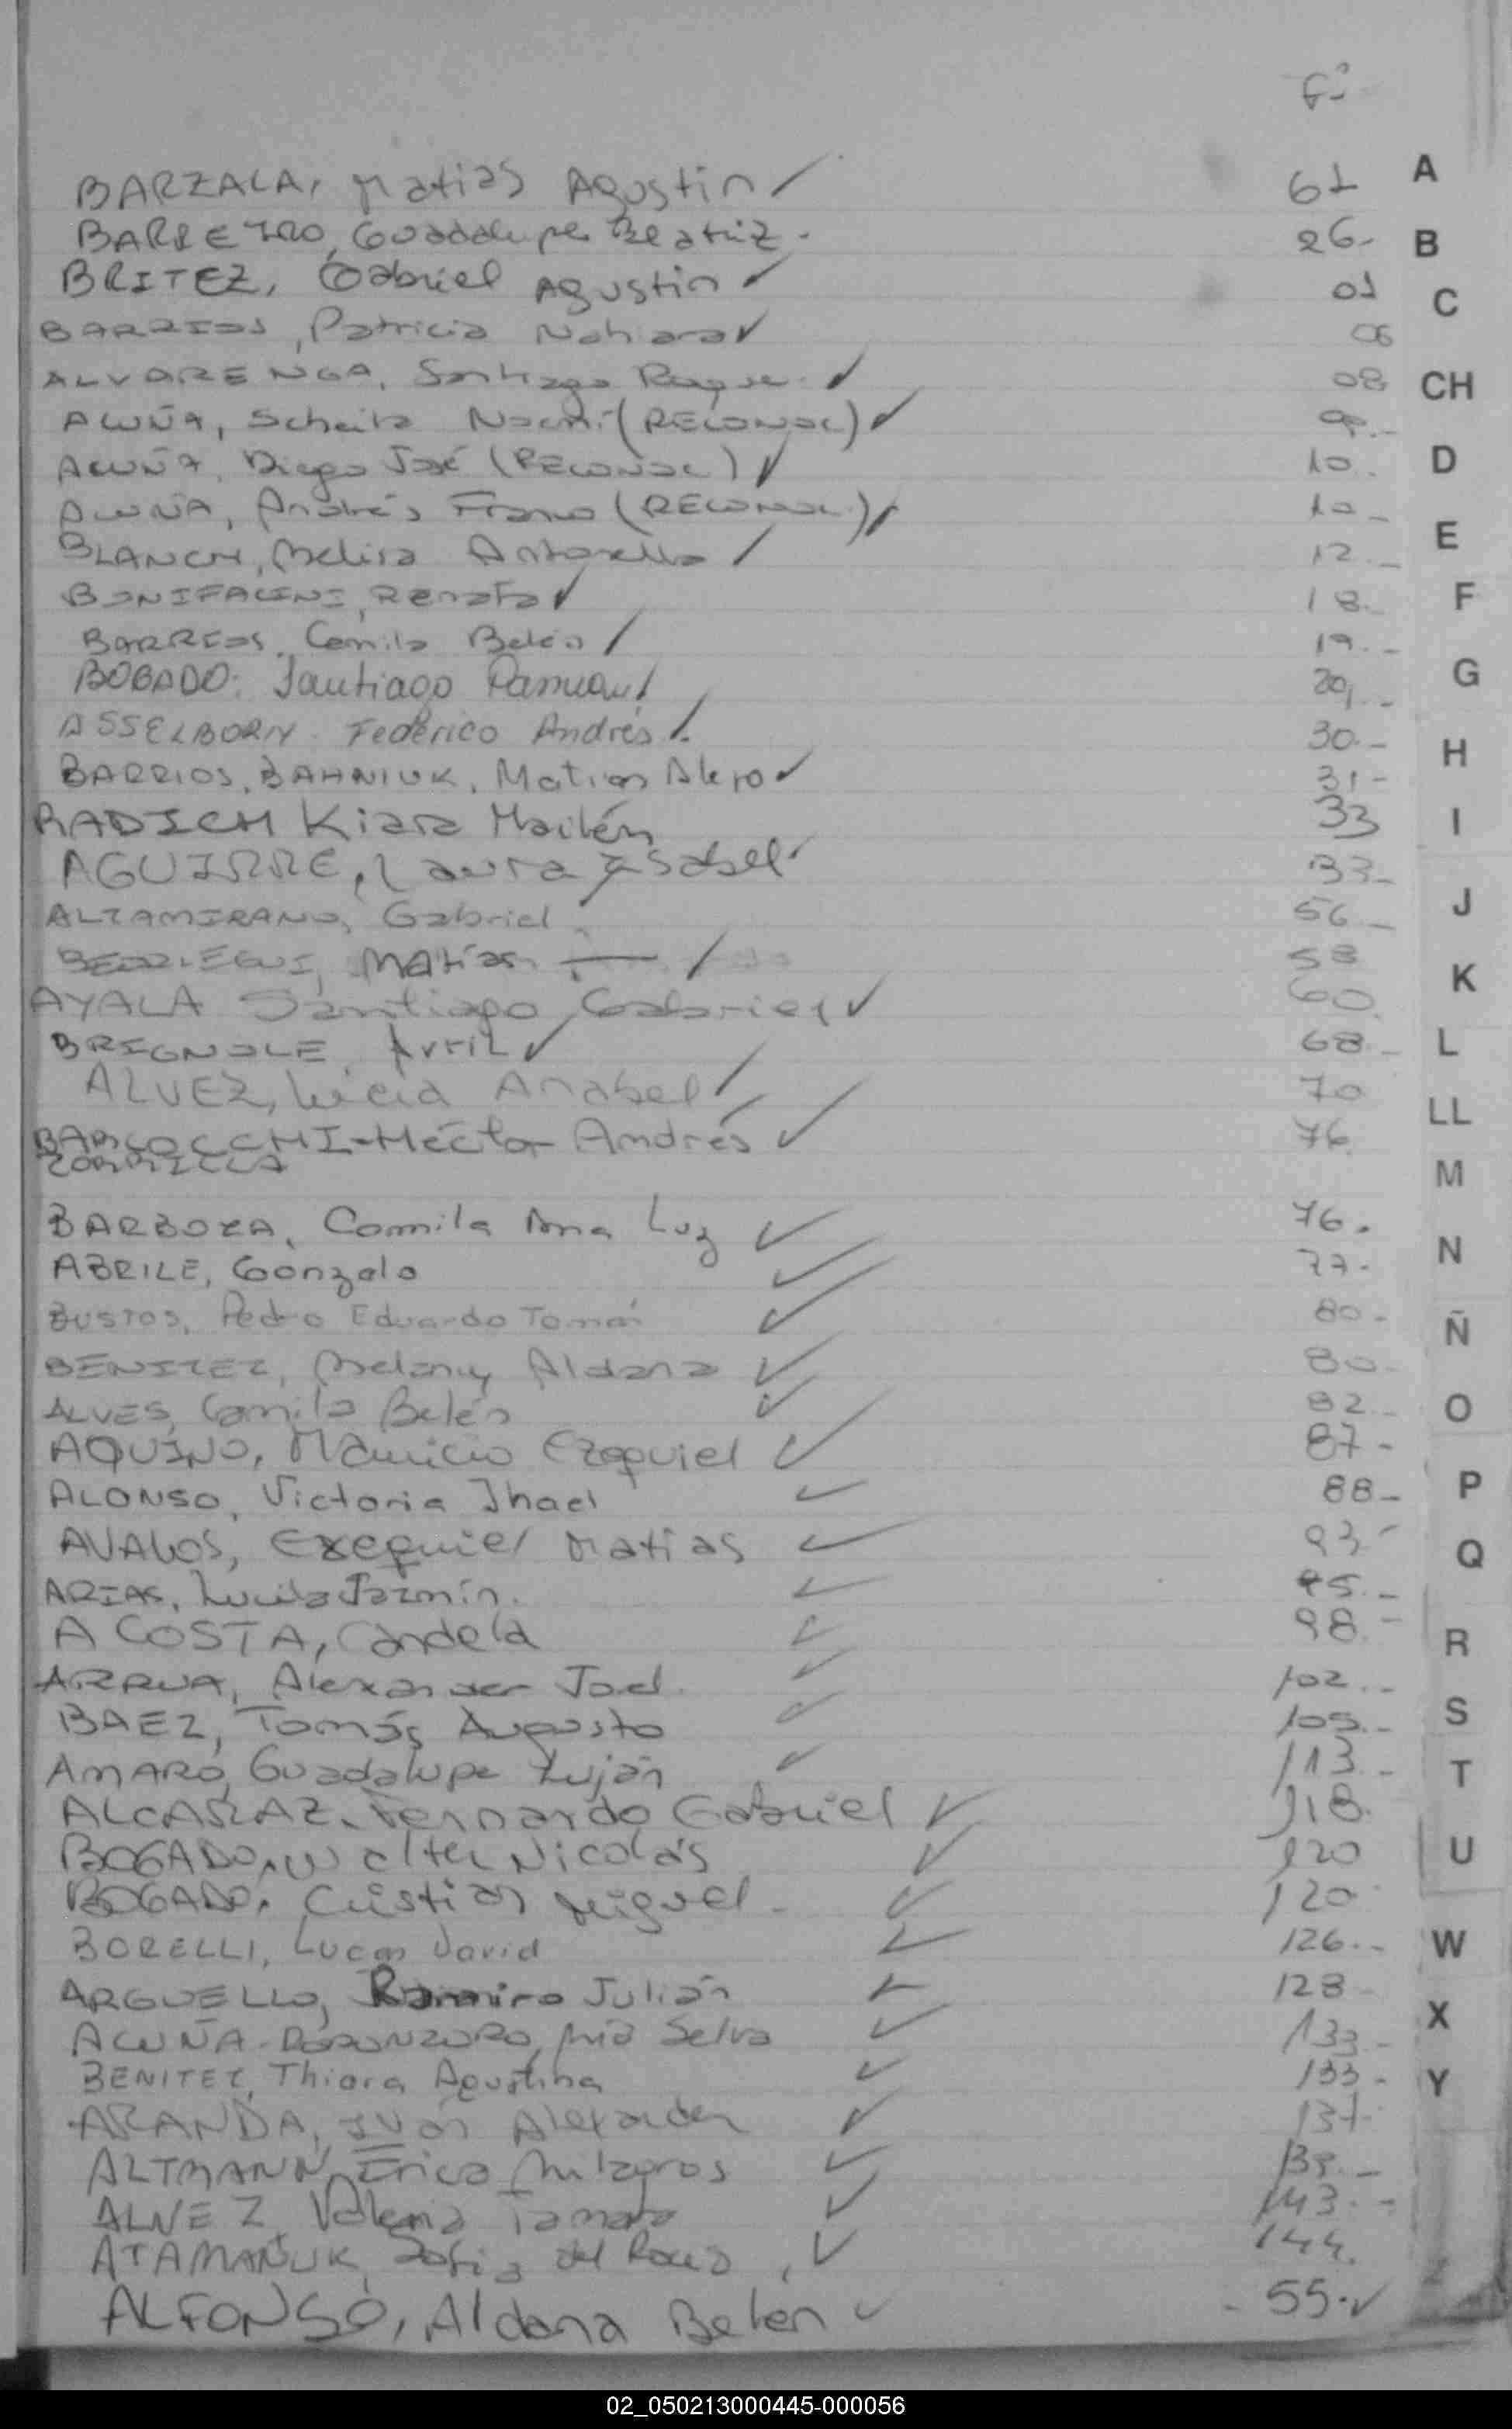 Fº
BARZALA, Matias Agustin ✓ 61
BARREIRO, Guadalupe Beatriz. 26-
BRITEZ, Gabriel Agustin ✓ 01
BARRIOS, Patricia Nahiara ✓ 06
ALVARENGA, Santiago Roque. ✓ 08
ACUÑA, Scheila Noemí (RECONOC) ✓ 09.-
ACUÑA, Diego José (RECONOC) ✓ 10.
ACUÑA, Andrés Franco (RECONOC.) ✓ 10-
BLANCH, Melisa Antonella ✓ 12.-
BONIFACINI, Renata ✓ 18.-
BARRIOS, Camila Belén ✓ 19.-
BOGADO: Santiago ✓
ASSELBORN Federico Andrés ✓ 30.-
BARRIOS, BAHNIUK, Matias Alejo ✓ 31-
RADICH Kiara Mailén 33
AGUIRRE, Laura Isabel 33-
ALTAMIRANO, Gabriel 56-
Matías — ✓ 58
AYALA Santiago Gabriel ✓ 60
BRIGNOLE, Avril ✓ 68.-
ALVEZ, Lucia Anabel ✓ 70
BARCOCCHI-Héctor Andrés ✓ 76
ZORRILLA
BARBOZA, Camila Ana Luz ✓ 76.
ABRILE, Gonzalo ✓ 77.
BUSTOS, Pedro Eduardo Tomás ✓ 80-
BENITEZ, Melany Aldana ✓ 80-
ALVES, Camila Belén ✓ 82.-
AQUINO, Mauricio Ezequiel ✓ 87-
ALONSO, Victoria Jhael ✓ 88-
AVALOS, Exequiel Matias ✓ 93-
ARIAS, Lucila Jazmín. ✓ 95.-
ACOSTA, Candela ✓ 98.-
ARRUA, Alexander Joel ✓ 102.-
BAEZ, Tomás Augusto ✓ 105.-
AMARO, Guadalupe Luján ✓ 113.-
ALCARAZ, Fernando Gabriel ✓ 118.
BOGADO, Walter Nicolás ✓ 120
BOGADO, Cristian Miguel. ✓ 120
BORELLI, Lucas David ✓ 126.-
ARGUELLO, Ramiro Julián ✓ 128-
ACUÑA Selva ✓ 133-
BENITEZ, Thiara Agustina ✓ 133-
ARANDA, Iván Alexander ✓ 137.
ALTMANN, Erica Milagros ✓ 139.-
ALVEZ, Valeria Tamara ✓ 143.-
ATAMAÑUK, Sofia del Rocío, ✓ 144.
ALFONSO, Aldana Belen ✓ - 55.✓
A
B
C
CH
D
E
F
G
H
I
J
K
L
LL
M
N
Ñ
O
P
Q
R
S
T
U
W
X
Y
Z
02_050213000445-000056